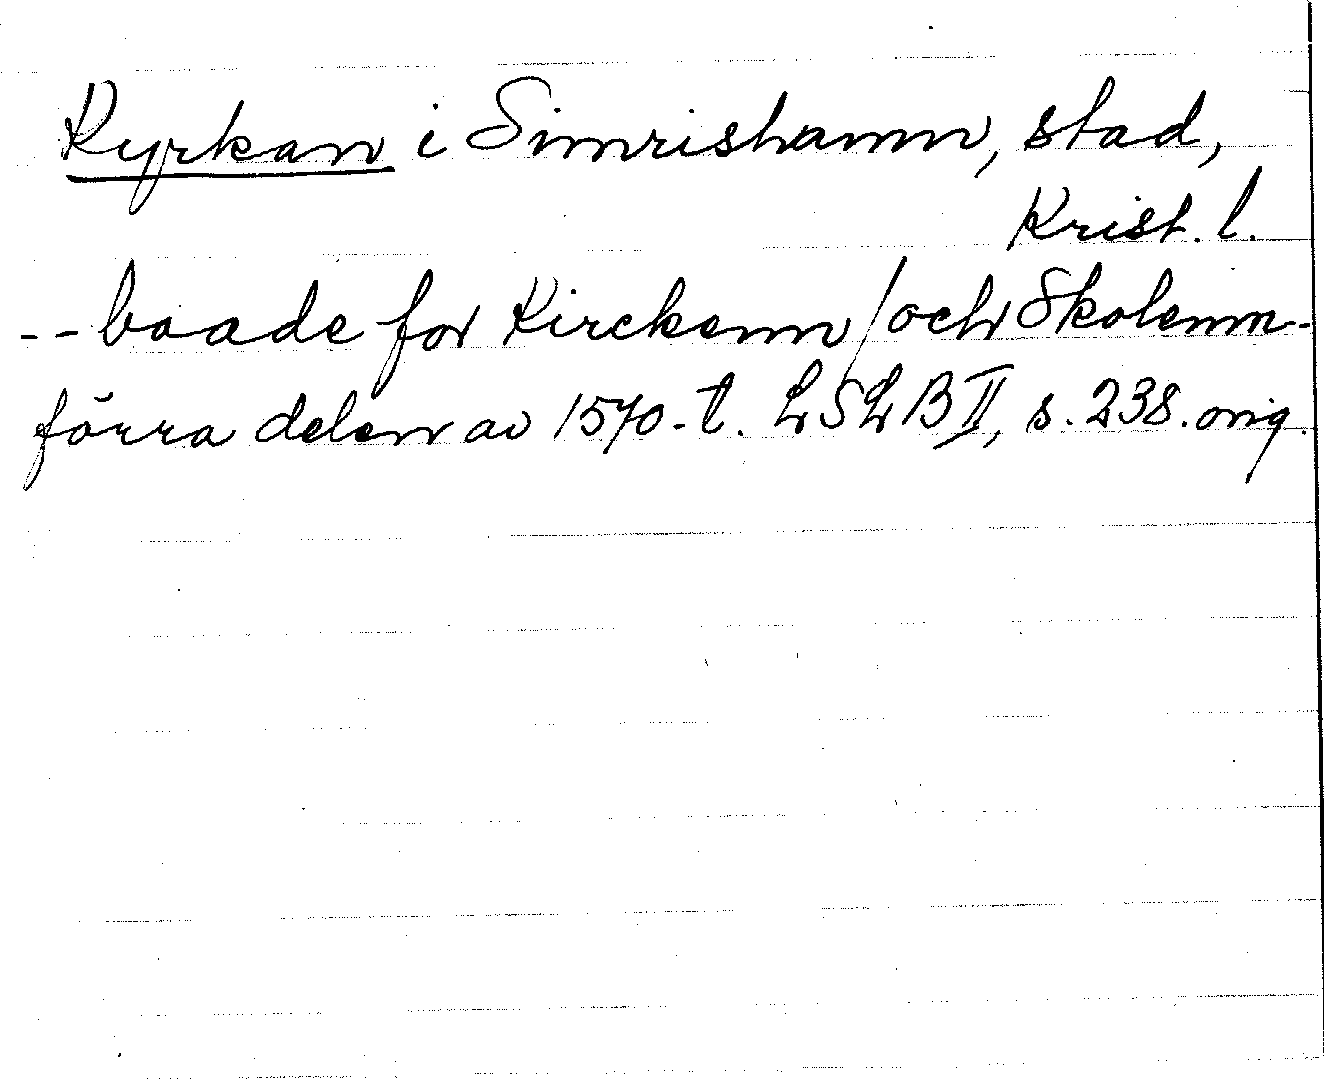 Kyrkan i Simrishamn, stad,
Krist. l.
-- baade for Kirckenn / och Skolenn -
förra delen av 1570-t. LSLB II, s. 238. orig.